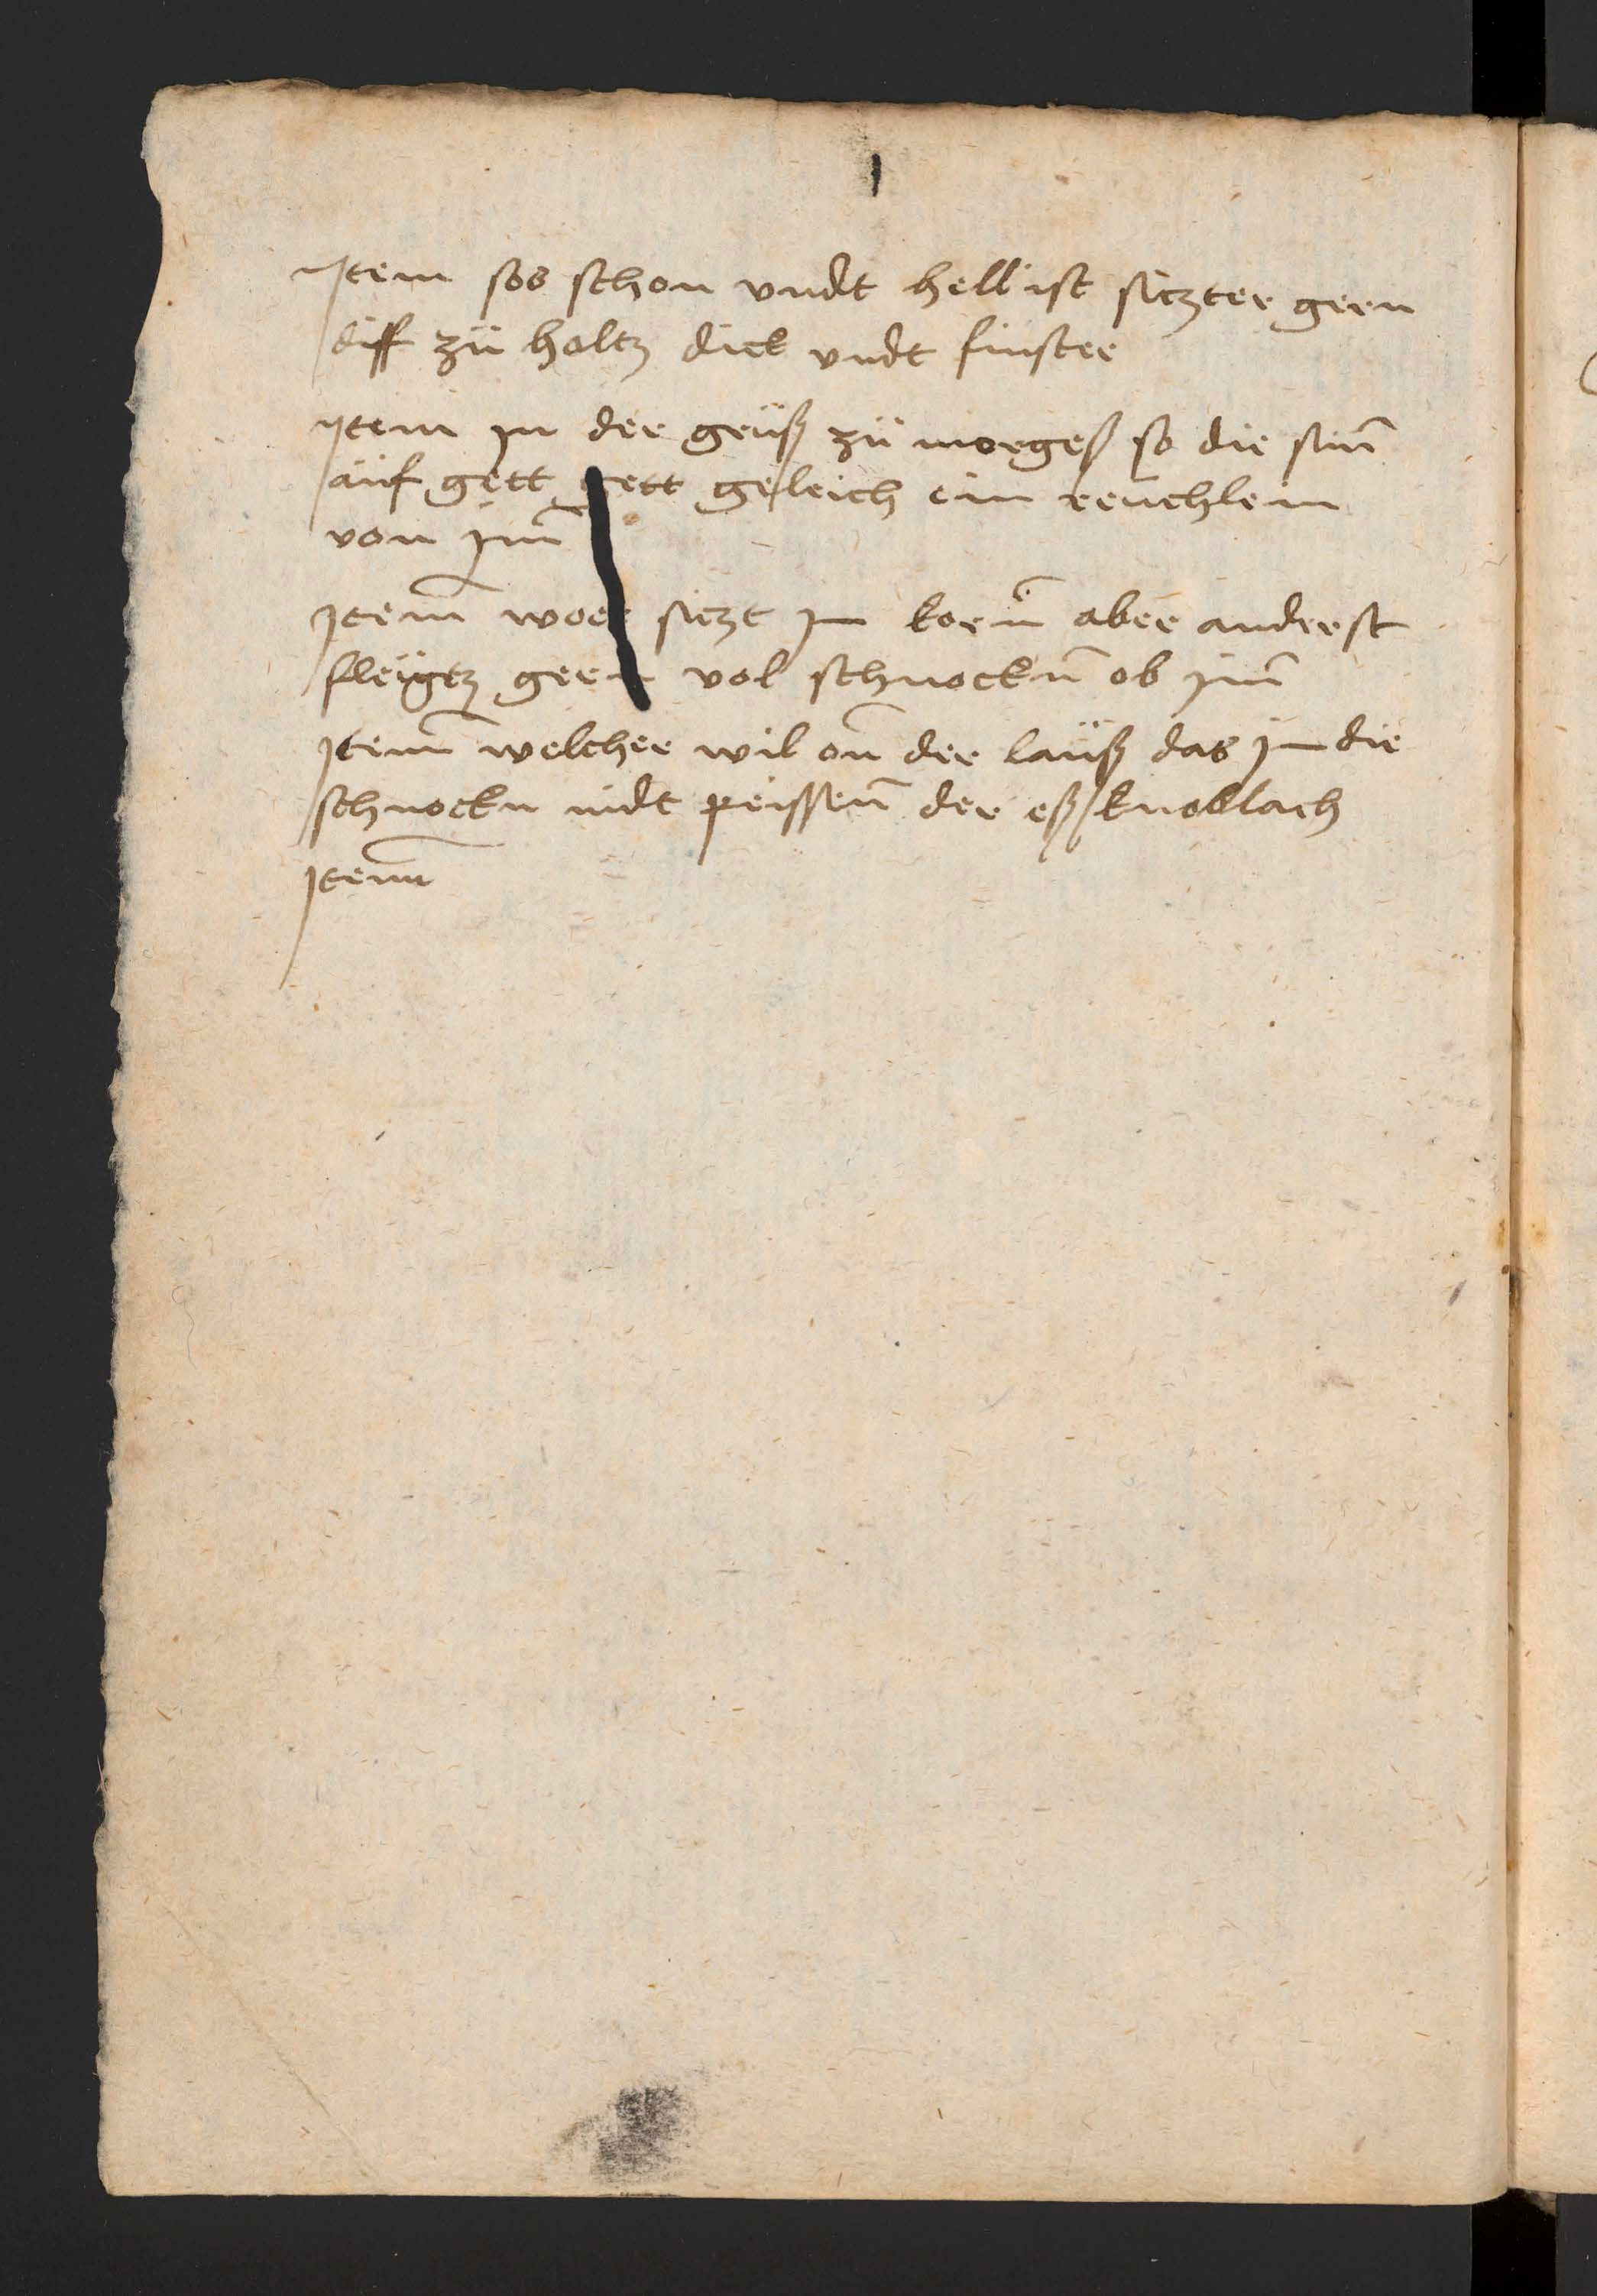 Jtem sos schon vndt hell ist siczter gern
diff zü holtz dick vndt finster
Jtem jn der grüß zü morgeß so die sun̄
aüf gett gett geleich ein reuchlein
von jm̄
Jtem̄ woer siczt jm korn̄ aber anderst
fleügtz gern vol schnockn̄ ob jm̄
Jtem̄ welcher wil on̄ der lauß das jm die
schnockn nidt peissen̄ der eß knoblach
Jtem̄